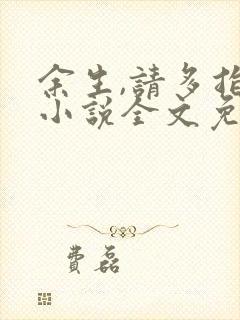 余生,請多指
小說全文免
費磊